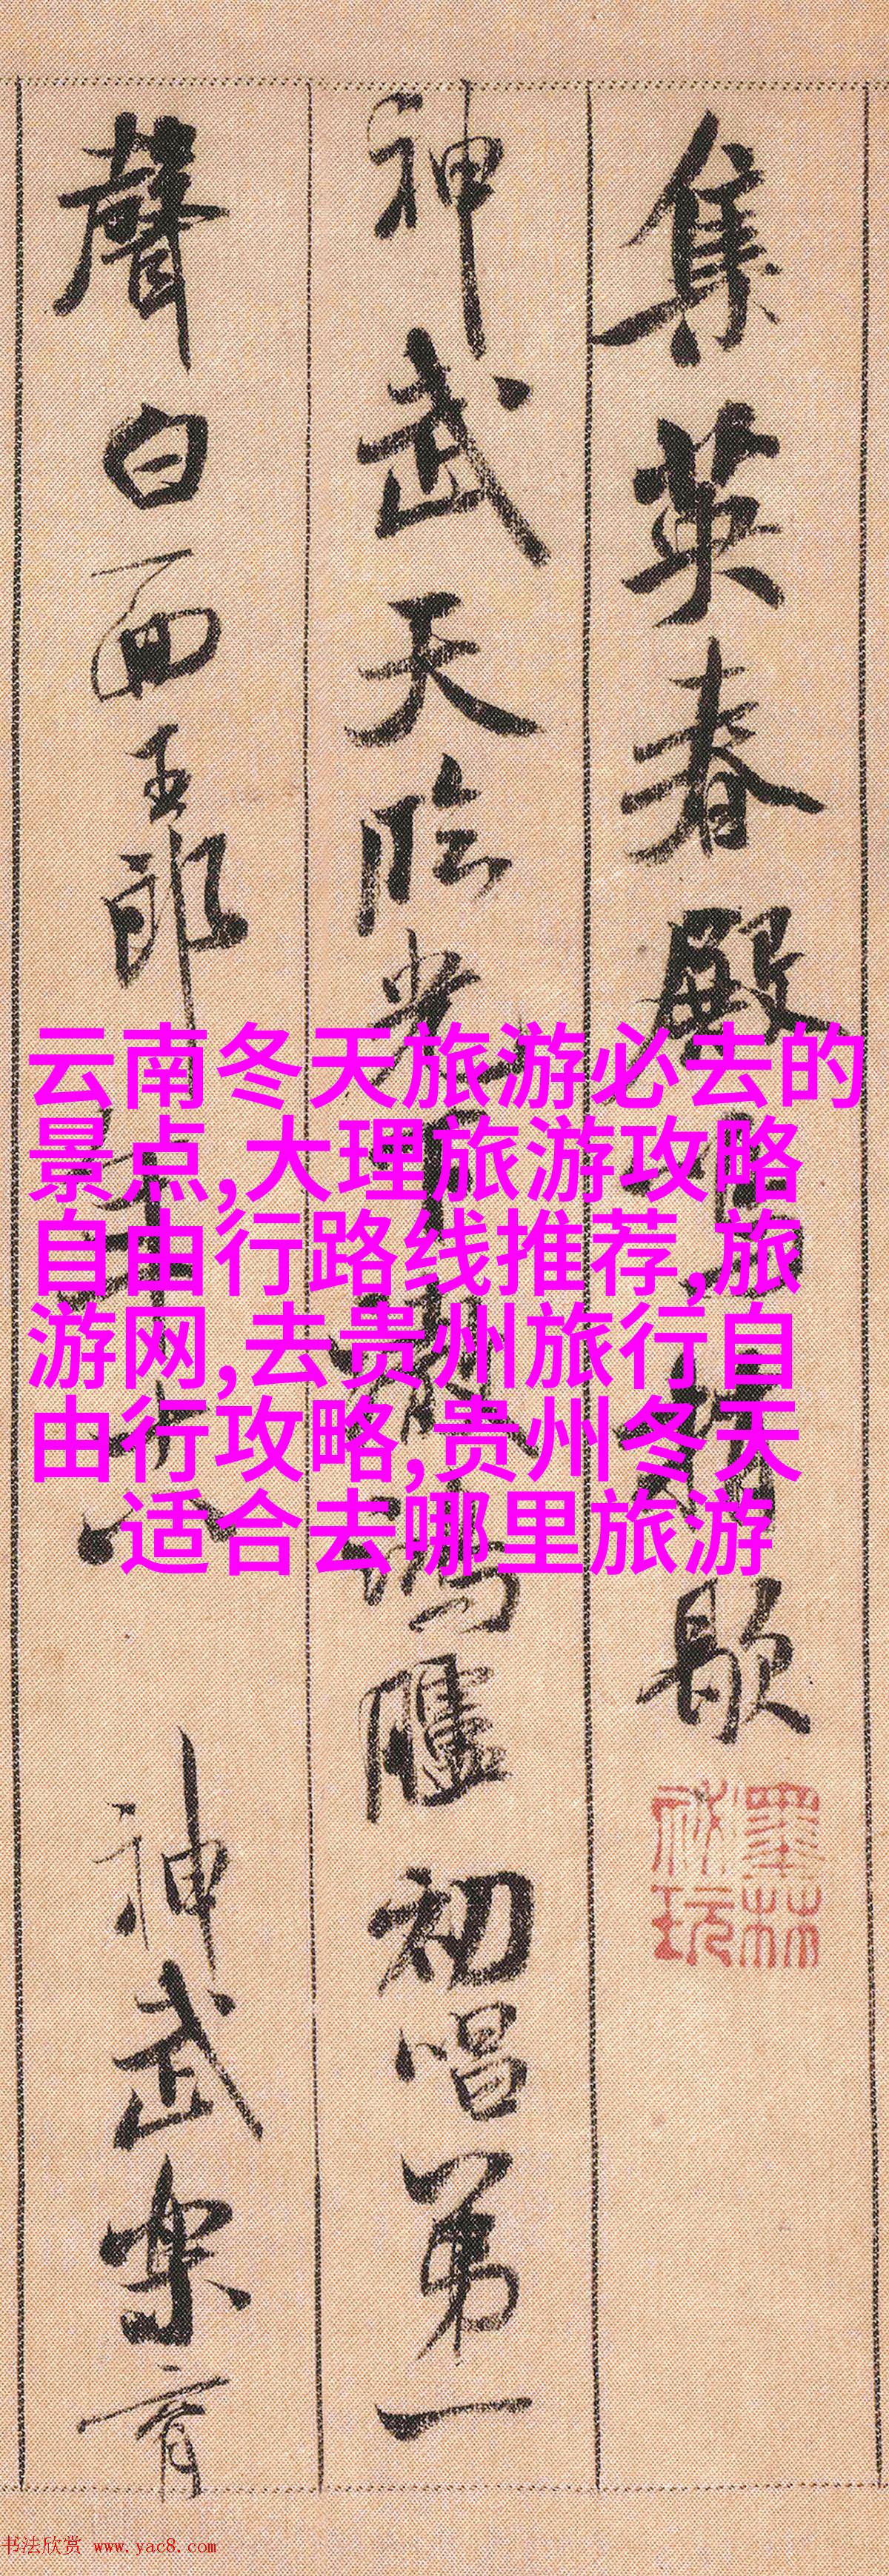 集英春殿鳴鞘歇
神武天臨光下澈鴻臚初唱第一
聲白面玉郎年十八神武樂育
墨林
祕玩
云南冬天旅游必去的
景点,大理旅游攻略
自由行路线推荐,旅
游网,去贵州旅行自
由行攻略,贵州冬天
适合去哪里旅游
书法欣赏 www.yac8.com